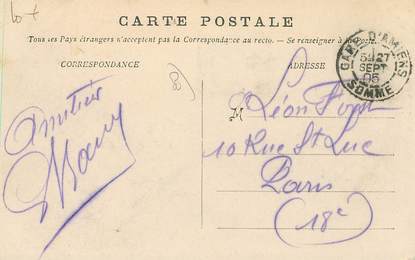 CARTE POSTALE
Tous les Pays étrangers n'acceptent pas la Correspondance au recto. — Se renseigner à la
CORRESPONDANCE
ADRESSE
GARE D'AMIENS
27
SEPT
SOMME
Amitiés
M
Léon
10 Rue St Luc
Paris
(18e)